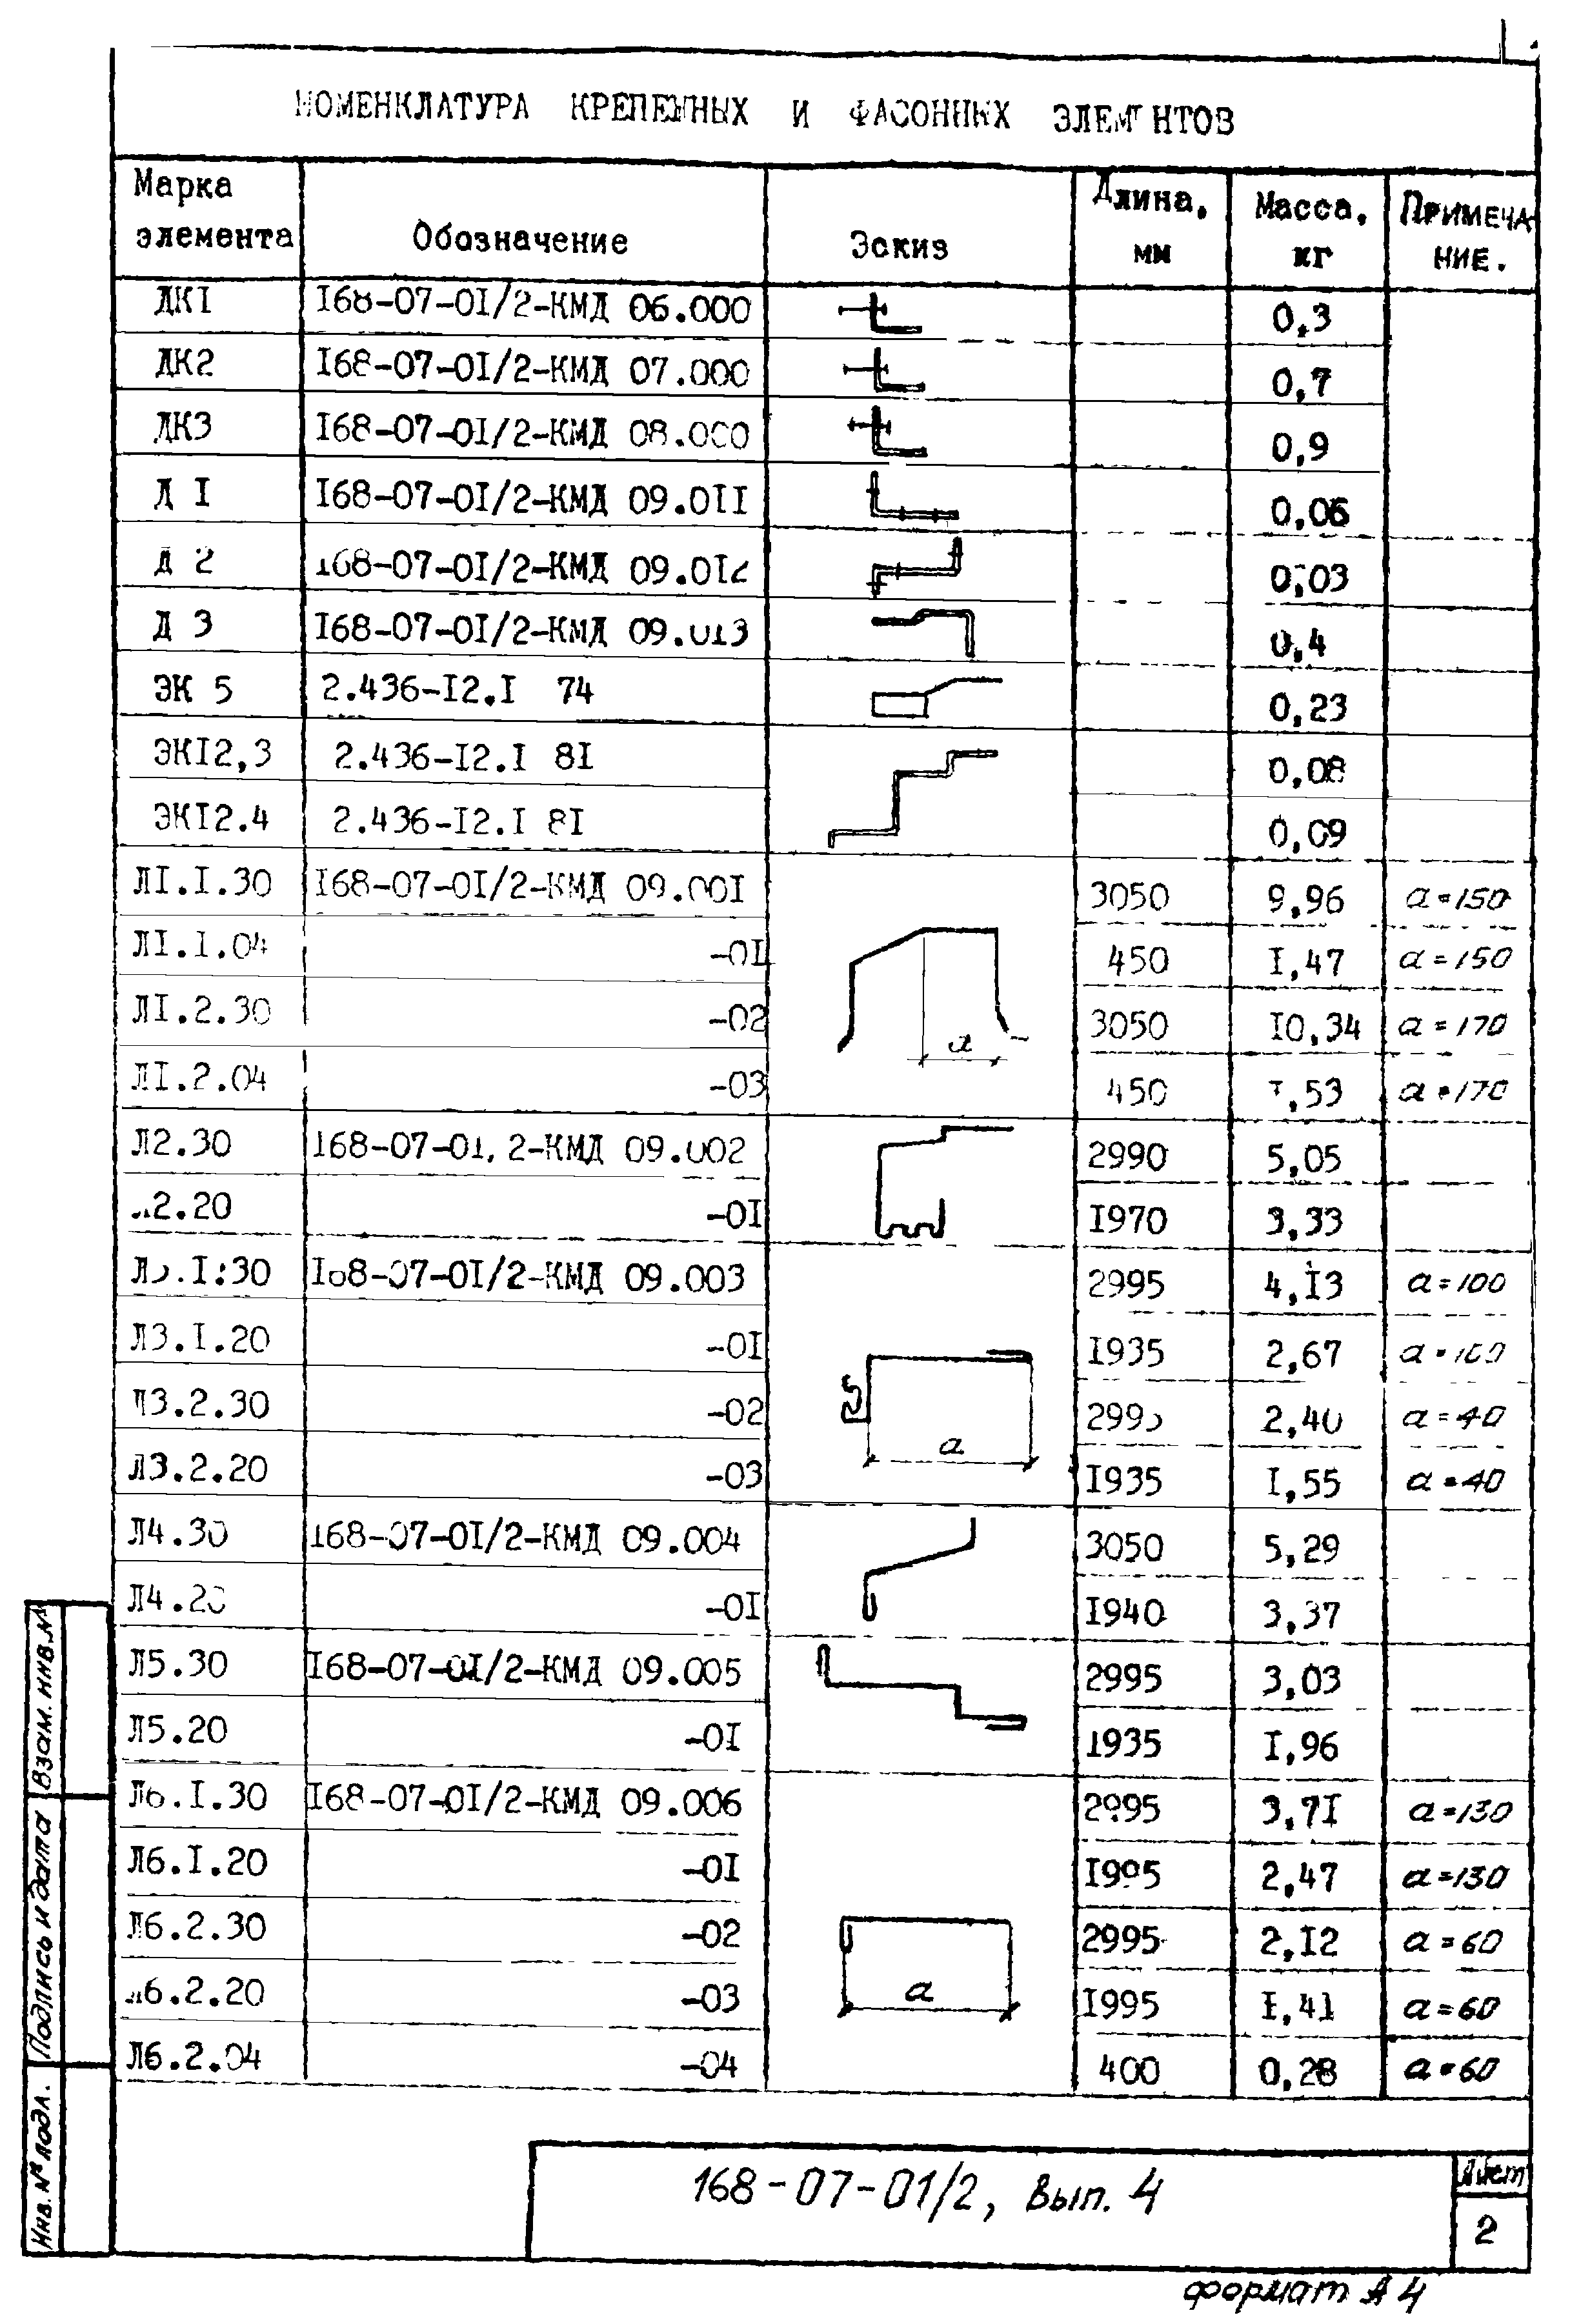 НОМЕНКЛАТУРА КРЕПЕЖНЫХ И ФАСОННЫХ ЭЛЕМЕНТОВ
Марка элемента Обозначение Эскиз Длина, мм Масса, кг ПРИМЕЧАНИЕ.
ДКI I68-07-0I/2-КМД 06.000 0,3
ДК2 I68-07-0I/2-КМД 07.000 0,7
ДК3 I68-07-0I/2-КМД 08.000 0,9
Д I I68-07-0I/2-КМД 09.0II 0,06
Д 2 I68-07-0I/2-КМД 09.0I2 0,03
Д 3 I68-07-0I/2-КМД 09.0I3 0,4
ЭК 5 2.436-I2.I 74 0,23
ЭКI2,3 2.436-I2.I 8I 0,08
ЭКI2.4 2.436-I2.I 8I 0,09
ЛI.I.30 I68-07-0I/2-КМД 09.00I 3050 9,96 а=150
ЛI.I.04 -0I 450 I,47 а=150
ЛI.2.30 -02 3050 I0,34 а=170
а
ЛI.2.04 -03 450 I,53 а=170
Л2.30 I68-07-0I/2-КМД 09.002 2990 5,05
Л2.20 -0I I970 3,33
Л3.I.30 I68-07-0I/2-КМД 09.003 2995 4,I3 а=100
Л3.I.20 -0I I935 2,67 а=100
Л3.2.30 -02 2995 2,40 а=40
а
Л3.2.20 -03 I935 I,55 а=40
Л4.30 I68-07-0I/2-КМД 09.004 3050 5,29
Л4.20 -0I I940 3,37
Л5.30 I68-07-0I/2-КМД 09.005 2995 3,03
Л5.20 -0I I935 I,96
Л6.I.30 I68-07-0I/2-КМД 09.006 2995 3,7I а=130
Л6.I.20 -0I I995 2,47 а=130
Л6.2.30 -02 2995 2,I2 а=60
Л6.2.20 -03 а I995 I,41 а=60
Л6.2.04 -04 400 0,28 а=60
Взам. инв.№
Подпись и дата
Инв. № подл.
168-07-01/2, Вып. 4
Лист
2
формат А4